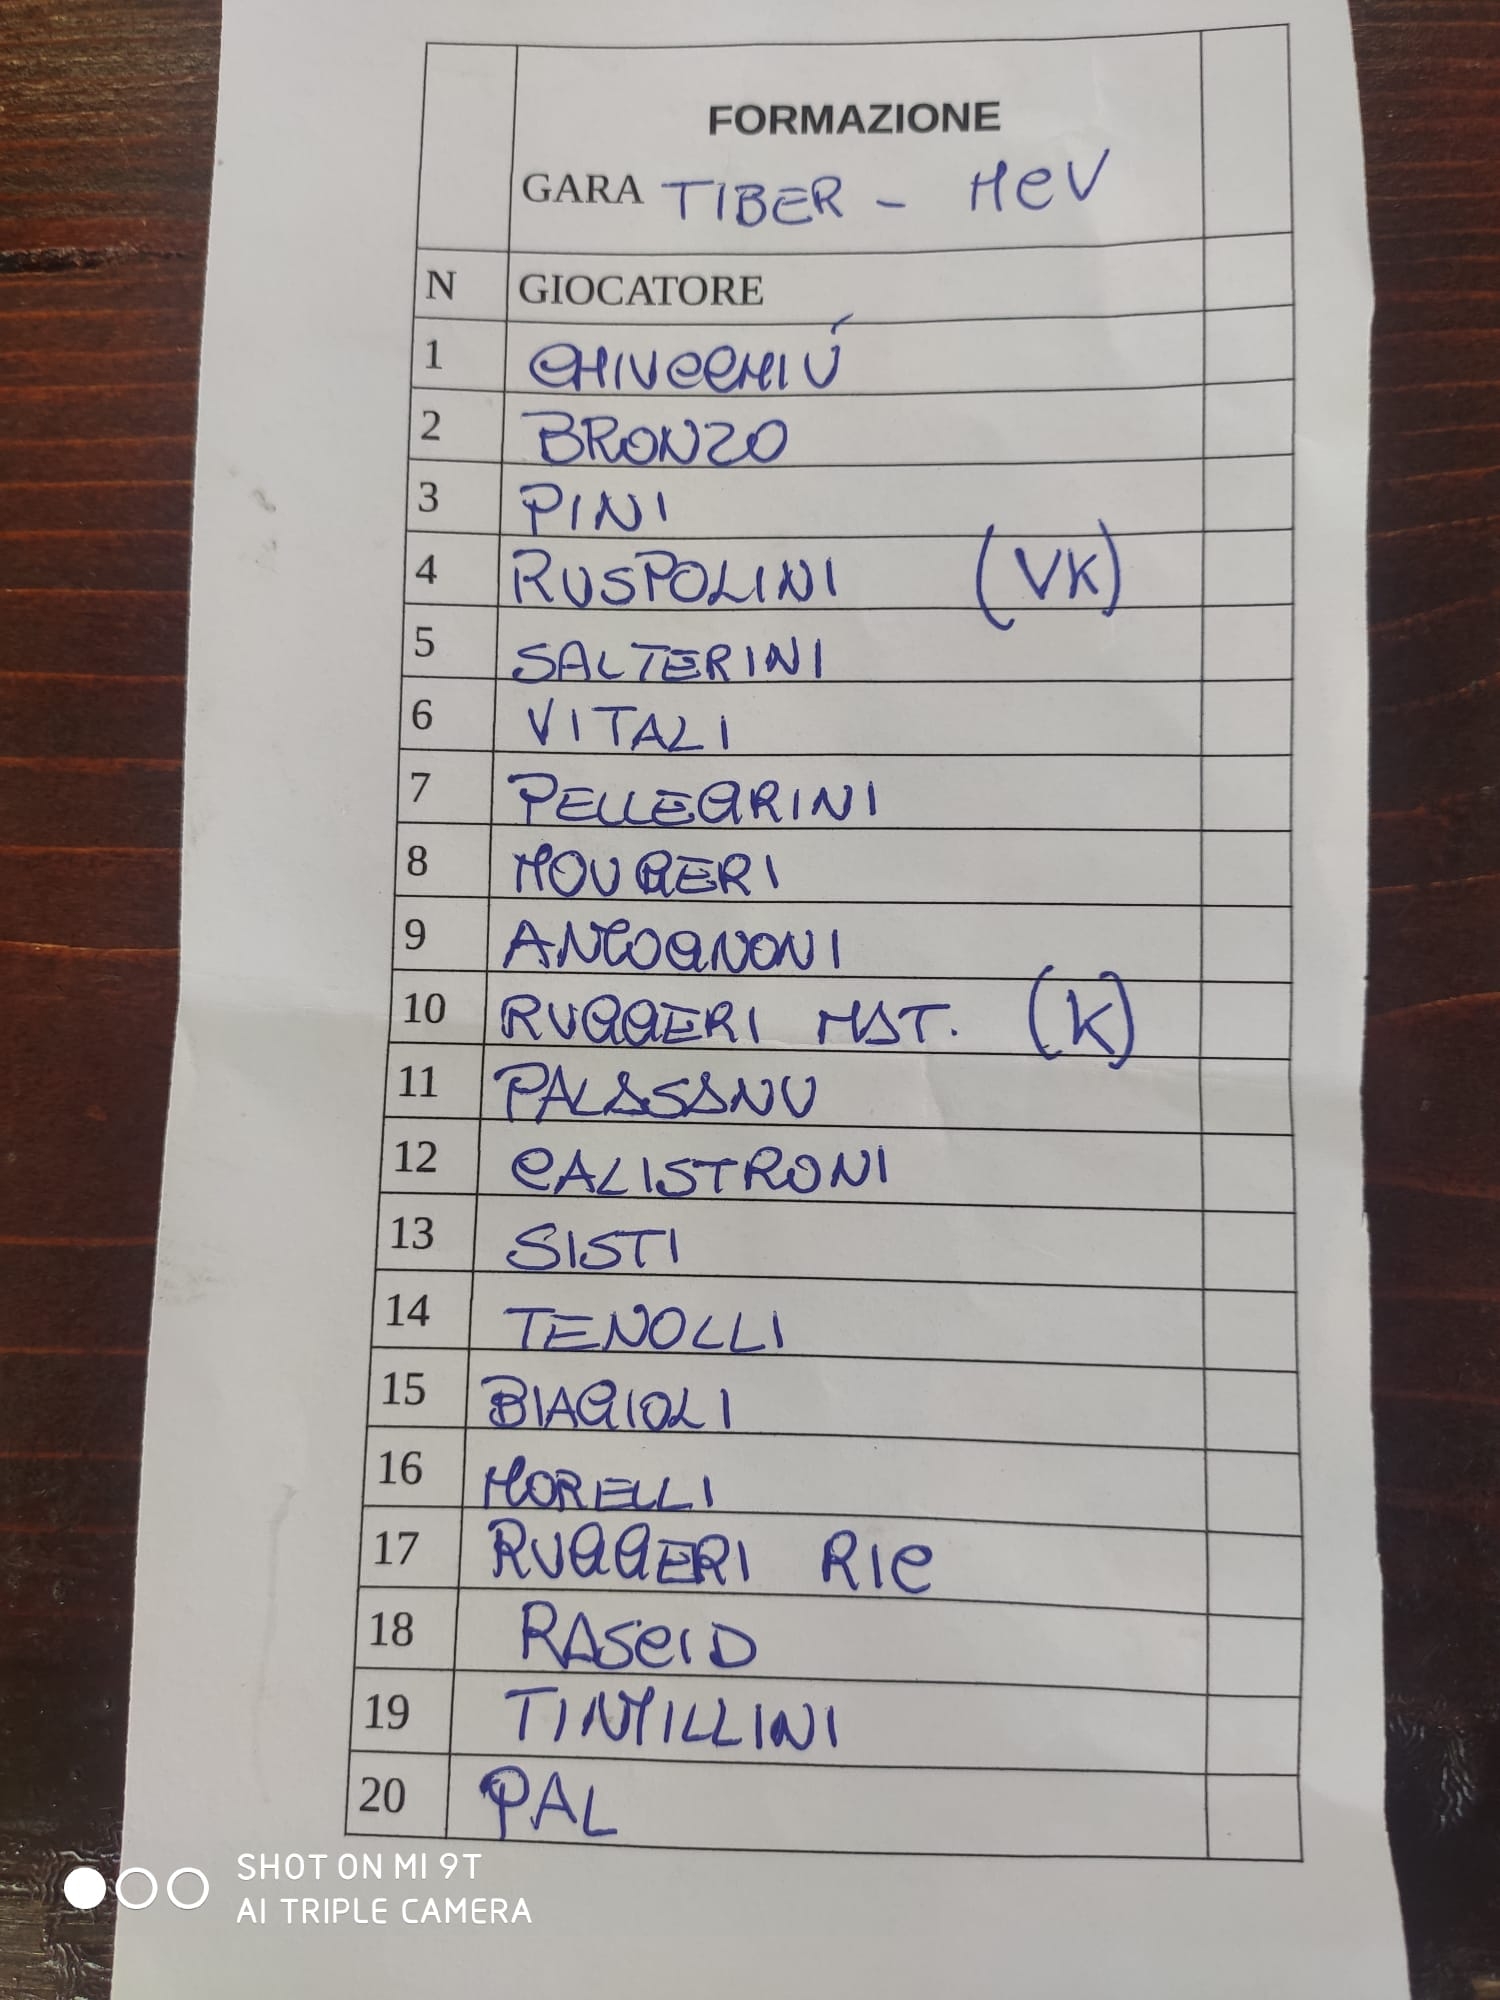 FORMAZIONE
GARA TIBER - MCV
N GIOCATORE
1 CHIUCCHIÚ
2 BRONZO
3 PINI
4 RUSPOLINI (VK)
5 SALTERINI
6 VITALI
7 PELLEGRINI
8 MOUGERI
9 ANCOGNONI
10 RUGGERI MAT. (K)
11 PALASANU
12 CALISTRONI
13 SISTI
14 TENOLLI
15 BIAGIOLI
16 MORELLI
17 RUGGERI RIC
18 RASCID
19 TINTILLINI
20 PAL
SHOT ON MI 9T
AI TRIPLE CAMERA